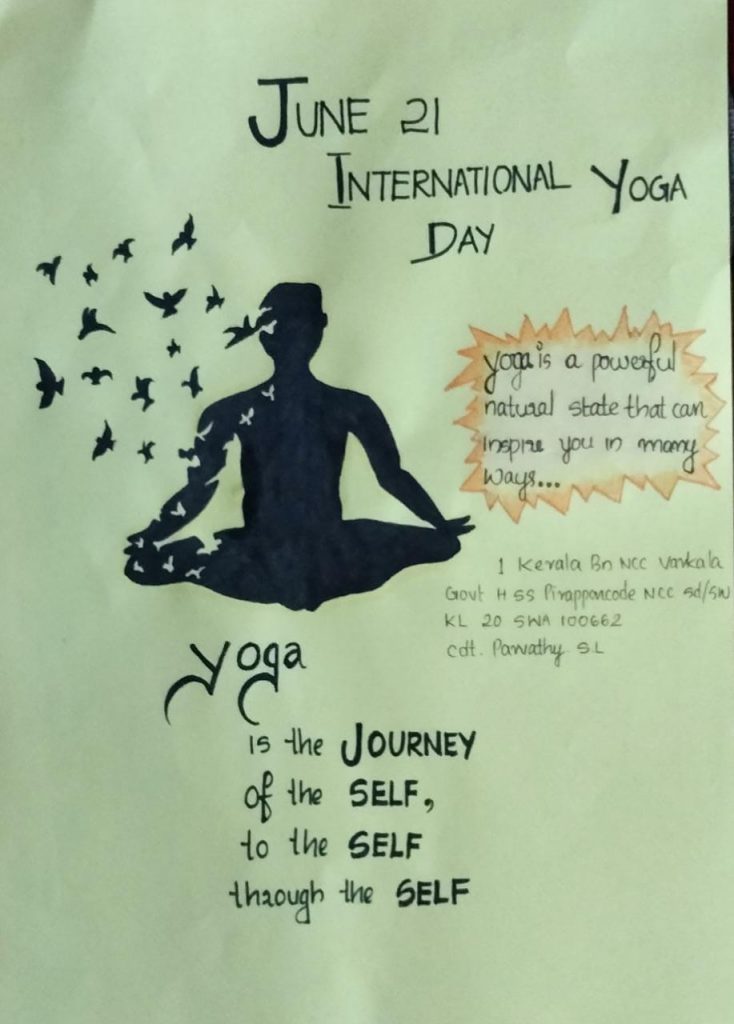 JUNE 21
INTERNATIONAL YOGA
DAY
yoga is a powerful
natural state that can
inspire you in many
ways...
1 Kerala Bn NCC Varkala
Govt HSS Pirappancode NCC Sd/SW
KL 20 SWA 100662
cdt. Parvathy S L
yoga
is the JOURNEY
of the SELF,
to the SELF
through the SELF